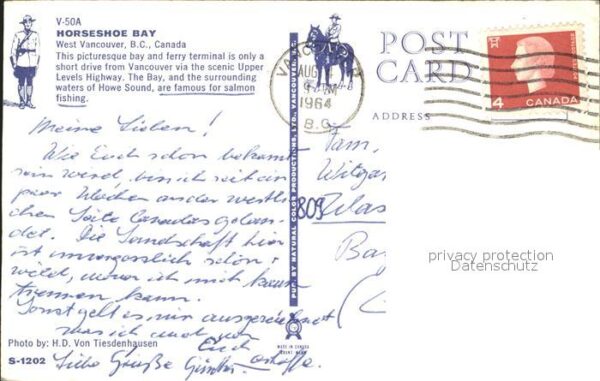 V-50A
HORSESHOE BAY
West Vancouver, B.C., Canada
This picturesque bay and ferry terminal is only a
short drive from Vancouver via the scenic Upper
Levels Highway. The Bay, and the surrounding
waters of Howe Sound, are famous for salmon
fishing.
Meine Lieben!
Wie Euch schon bekannt
sein wird, bin ich seit ein
paar Wochen an der westli-
chen Seite Canadas gelan-
det. Die Landschaft hier
ist unvergesslich schön &
wild, wovon ich mich kaum
trennen kann.
Sonst geht es mir ausgezeichnet
was ich auch von
Euch hoffe.
Liebe Grüße
Photo by: H.D. Von Tiesdenhausen
S-1202
PUB BY NATURAL COLOR PRODUCTIONS, LTD., VANCOUVER
MADE IN CANADA
VANCOUVER
AUG
PM
1964
B.C.
POST
CARD
ADDRESS
4
CANADA
Fam.
809
Ba
privacy protection
Datenschutz